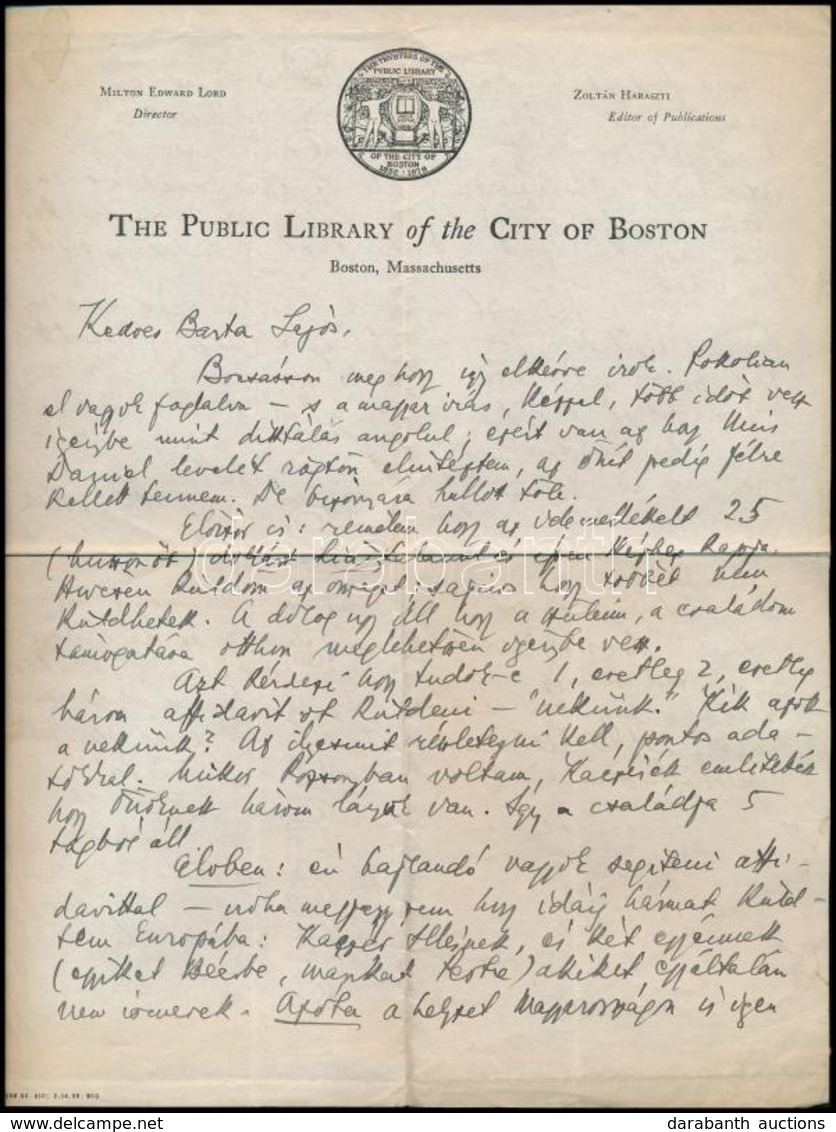 MILTON EDWARD LORD
Director
THE TRUSTEES OF THE
PUBLIC LIBRARY
OF THE CITY OF
BOSTON
1852 · 1878
ZOLTÁN HARASZTI
Editor of Publications
THE PUBLIC LIBRARY of the CITY OF BOSTON
Boston, Massachusetts
Kedves Barta Lajos,
Bocsásson meg hogy így elkésve írok. Pokolian
el vagyok foglalva – s a magyar írás, kézzel, több időt vesz
igénybe mint diktálás angolul; ezért van az hogy Miss
Daniel levelét rögtön elintéztem, az Önét pedig félre
kellett tennem. De bizonyára hallot tőle.
Először is: remélem hogy az idemellékelt 25
(huszonöt) dollárt
Szívesen küldöm az összeget; sajnos hogy többet nem
küldhetek. A dolog úgy áll hogy a szüleim, a családom
támogatása otthon meglehetősen igénybe vesz.
Azt kérdezi hogy tudok-e 1, esetleg 2, esetleg
három affidavitot küldeni – "nekünk." Kik azok
a nekünk? Az ilyesmit részletezni kell, pontos ada-
tokkal. Mikor Pozsonyban voltam, említették
hogy Önöknek három lányuk van. Így a családja 5
tagból áll
Elöben: én hajlandó vagyok segíteni affi-
davittal – noha megjegyzem hogy idáig hármat küld-
tem Európába: Illésnek, és két egyénnek
(egyiket Bécsbe, másikat Pestre) akiket egyáltalán
nem ismerek. Azóta a helyzet Magyarországon is igen
darabanth
darabanth auctions